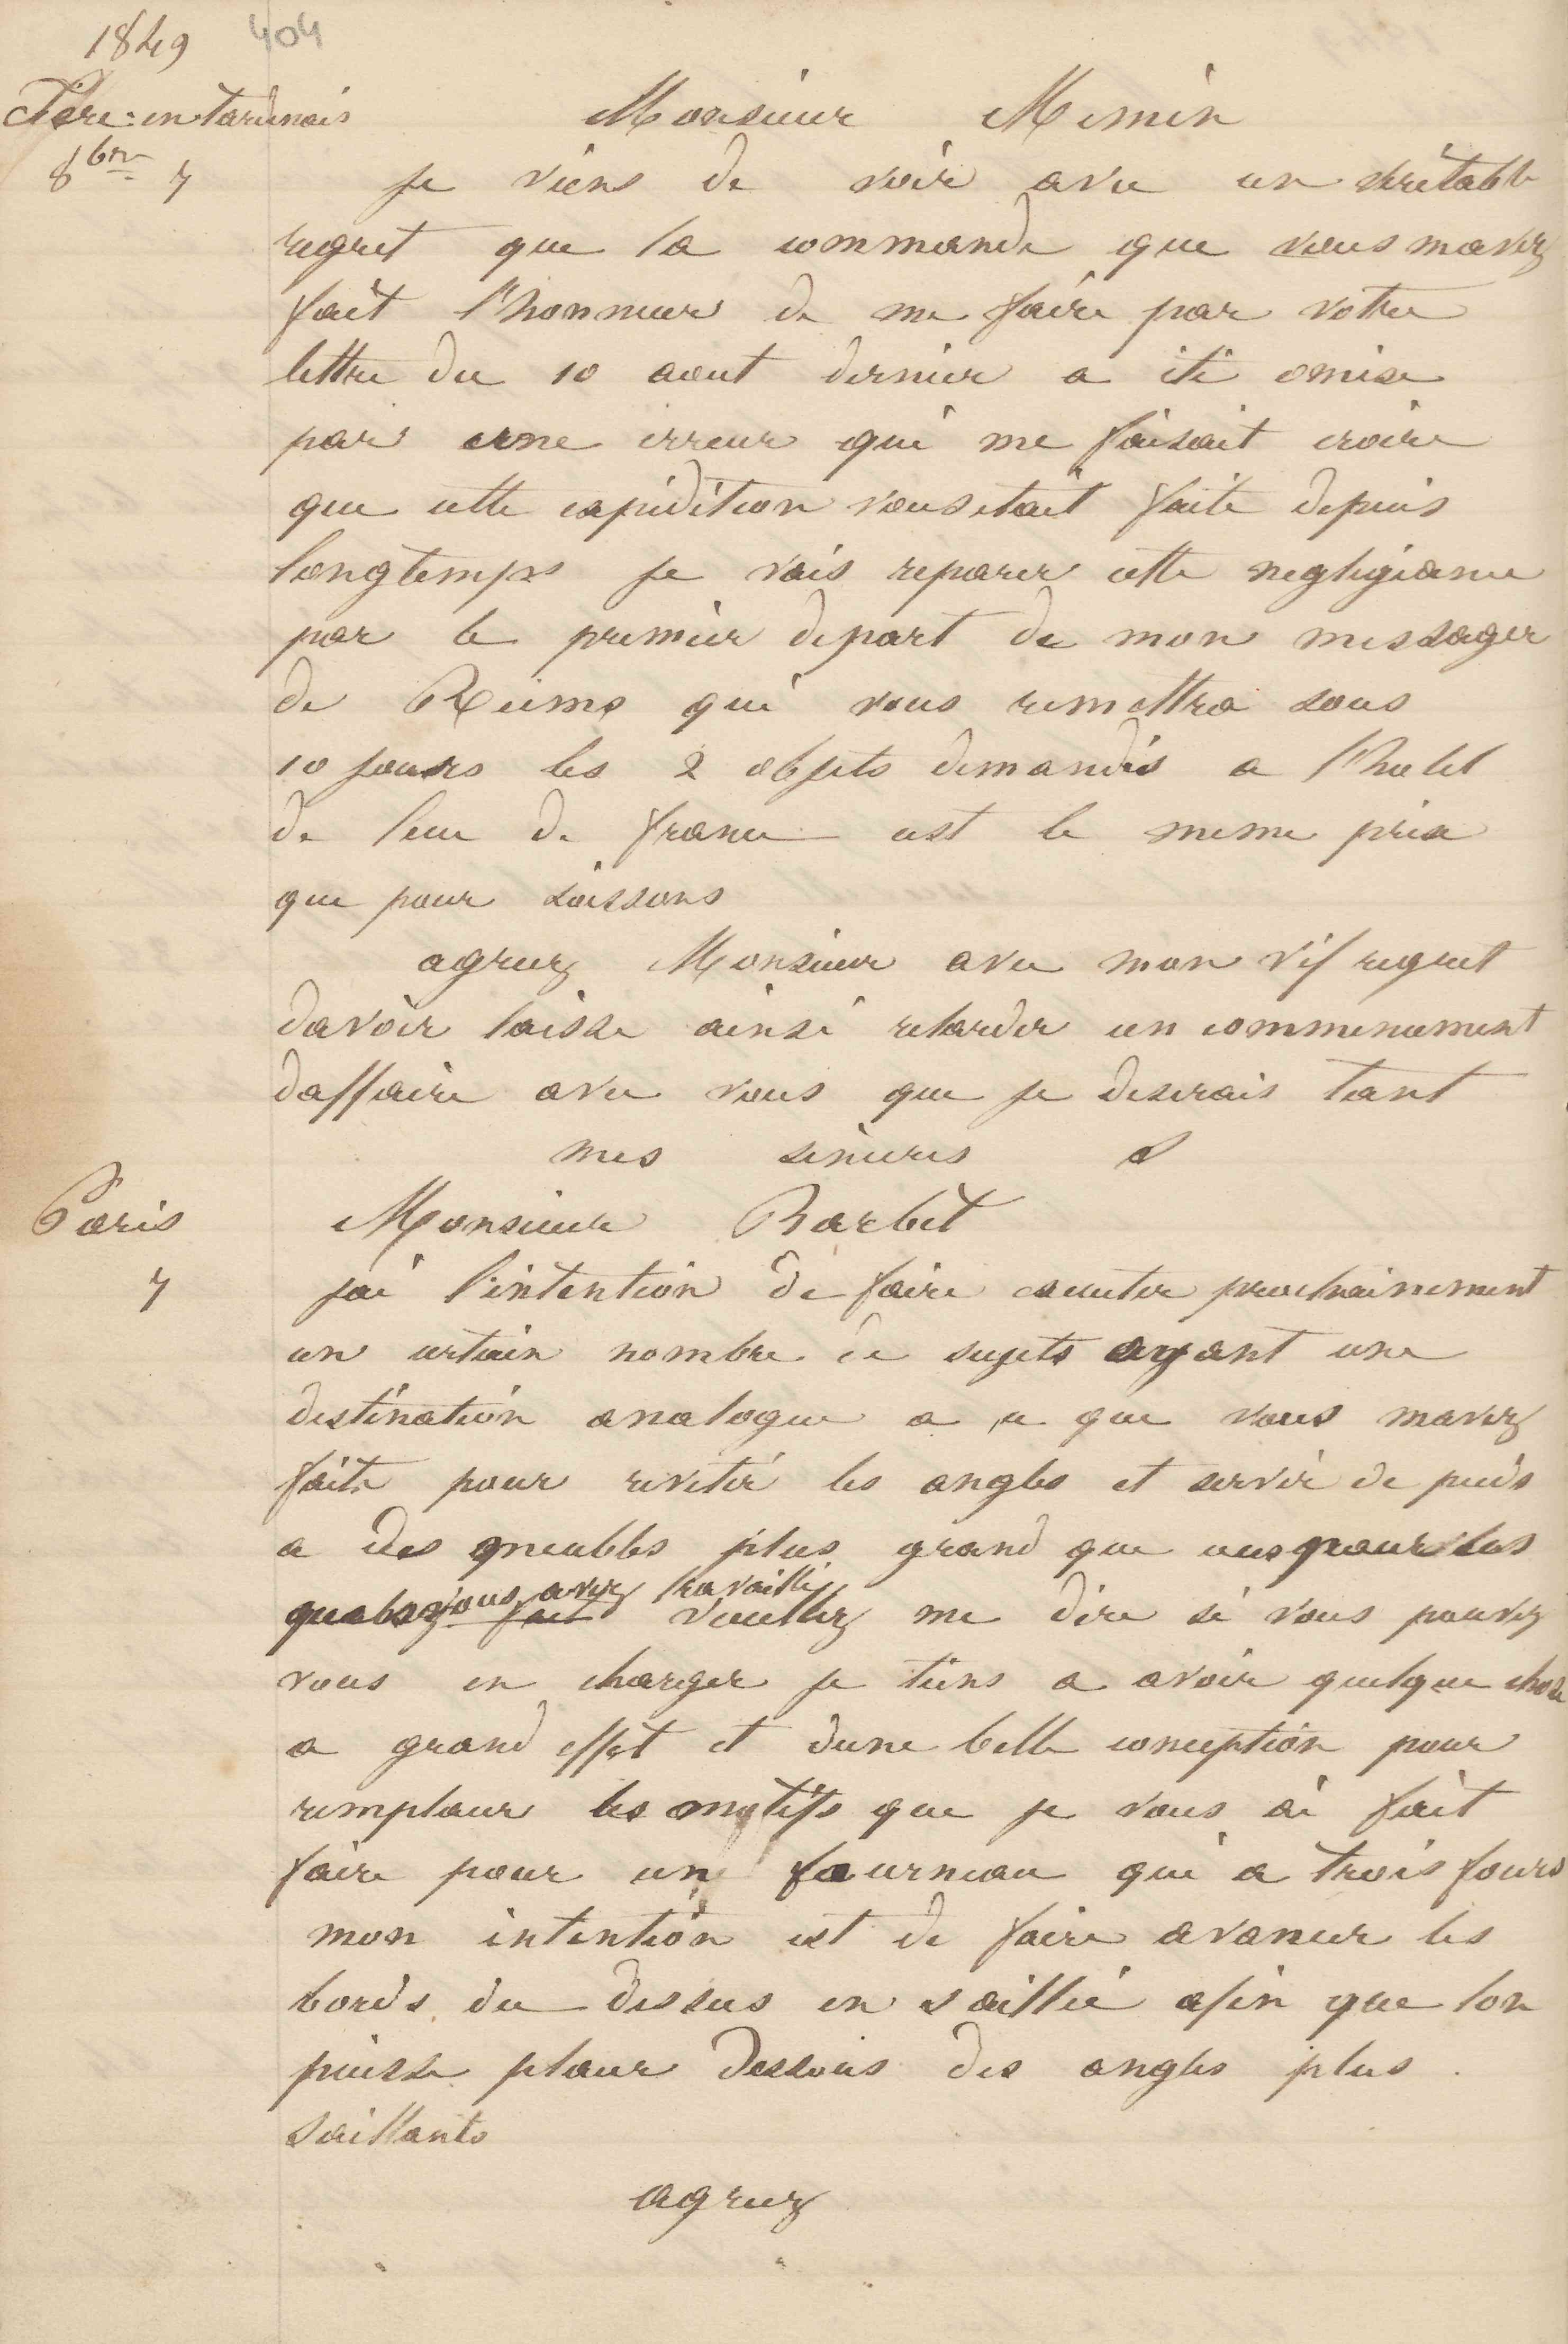 1849 404
Fère-en tardenois
8bre 7
Monsieur Memin
je viens de voir avec un véritable
regret que la commande que vous mavez
fait l'honneur de me faire par votre
lettre du 10 aout dernier a été omise
par une erreur qui me faisait croire
que cette expédition vous etait faite depuis
longtemps je vais reparer cette negligeance
par le premier depart de mon messager
de Reims qui vous remettra sous
10 jours les 2 objets demandés a l'hotel
de l'ecu de france cest le meme prix
que pour soissons
agreez Monsieur avec mon vif regret
davoir laisse ainsi retarder un commencement
daffaire avec vous que je deserais tant
mes sinceres S
Paris
7
Monsieur Barbet
jai l'intention de faire executer prochainement
un certain nombre de sujets ayant une
destination analogue a ce que vous mavez
faite pour revetir les angles et servir de pieds
a des meubles plus grand que ceux pour les
quels vous avez travaillé
fait veuillez me dire si vous pouvez
vous en charger je tiens a avoir quelque chose
a grand effet et dune belle conception pour
remplacer les motifs que je vous ai fait
faire pour un fourneau qui a trois fours
mon intention est de faire avancer les
bords du dessus en saillie afin que lon
puisse placer dessous des angles plus
saillants
agreez